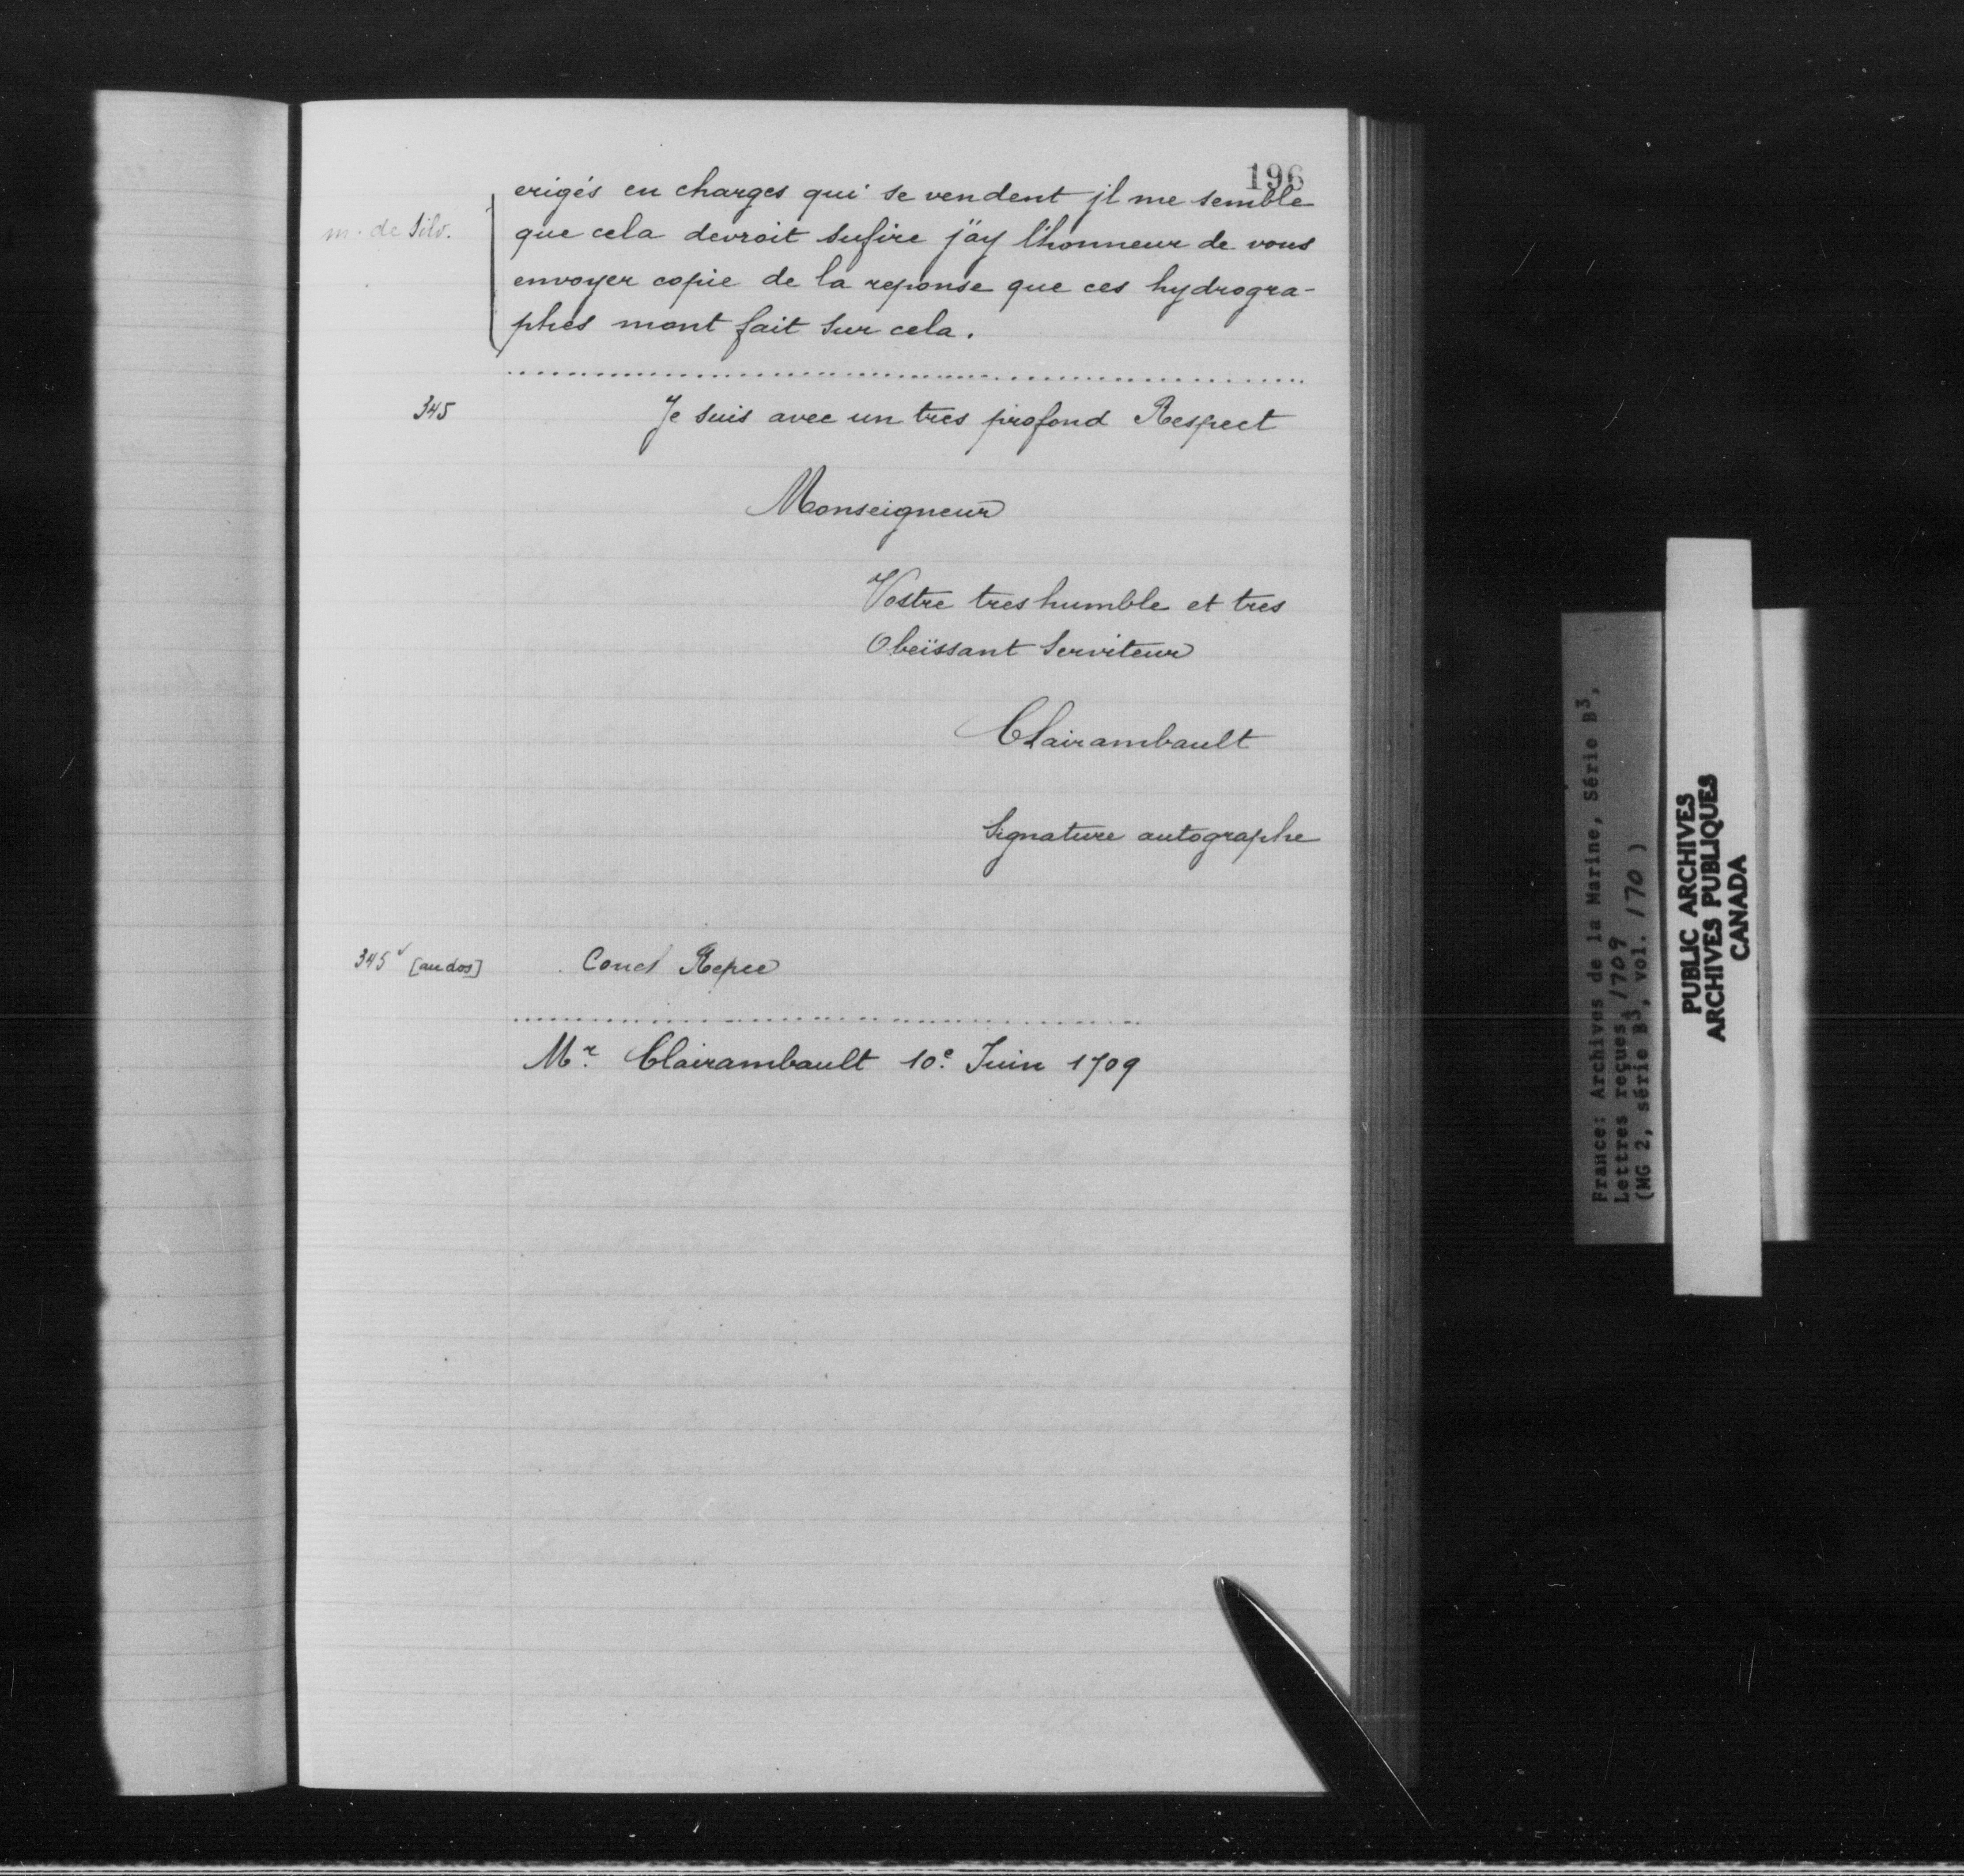 196
erigés en charges qui se vendent jl me semble
m. de Silv.
que cela devroit sufire j'ay l'honneur de vous
envoyer copie de la reponse que ces hydrogra-
phes mont fait sur cela.
345
Je suis avec un tres profond Respect
Monseigneur
Vostre tres humble et tres
Obeïssant Serviteur
Clairambault
Signature autographe
345v [au dos]
Mr. Clairambault 10e. Juin 1709
France: Archives de la Marine, Série B3,
Lettres reçues, 1709
(MG 2, série B3, vol. 170 )
PUBLIC ARCHIVES
ARCHIVES PUBLIQUES
CANADA